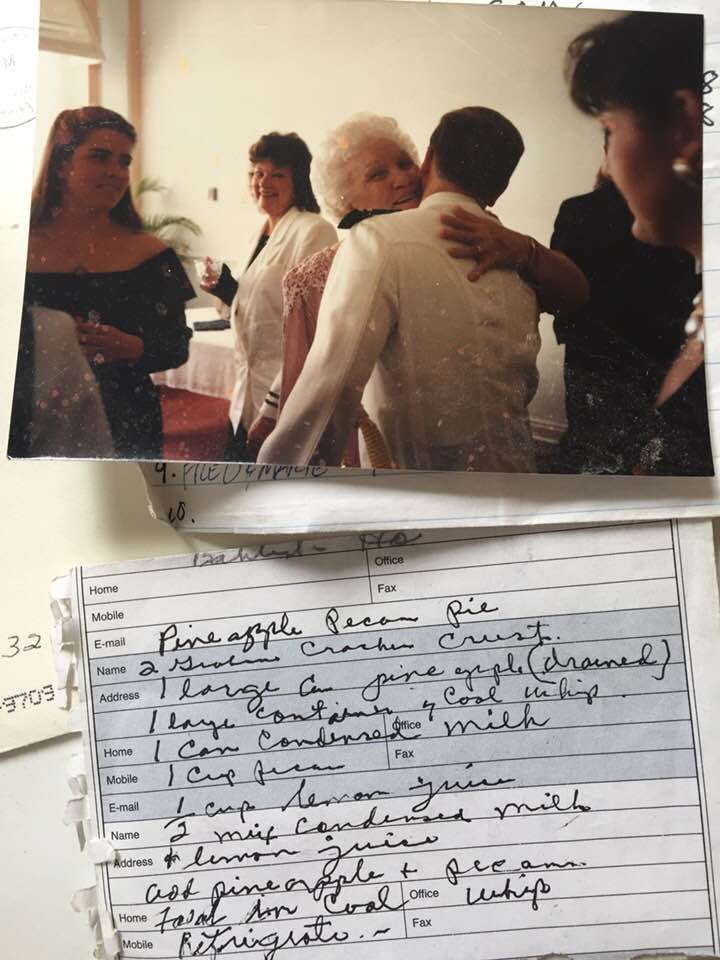 9.
10.
32
9709
Home
Office
Mobile
Fax
E-mail Pineapple Pecan Pie
Name 2 Graham Cracker Crust.
Address 1 large can pineapple (drained)
1 large container of Cool Whip.
Home 1 can Condensed milk
Office
Mobile 1 cup pecan
Fax
E-mail 1/2 cup lemon juice
Name mix condensed milk
Address + lemon juice
add pineapple + pecans.
Home Fold in Cool Whip
Office
Mobile Refrigerate.
Fax